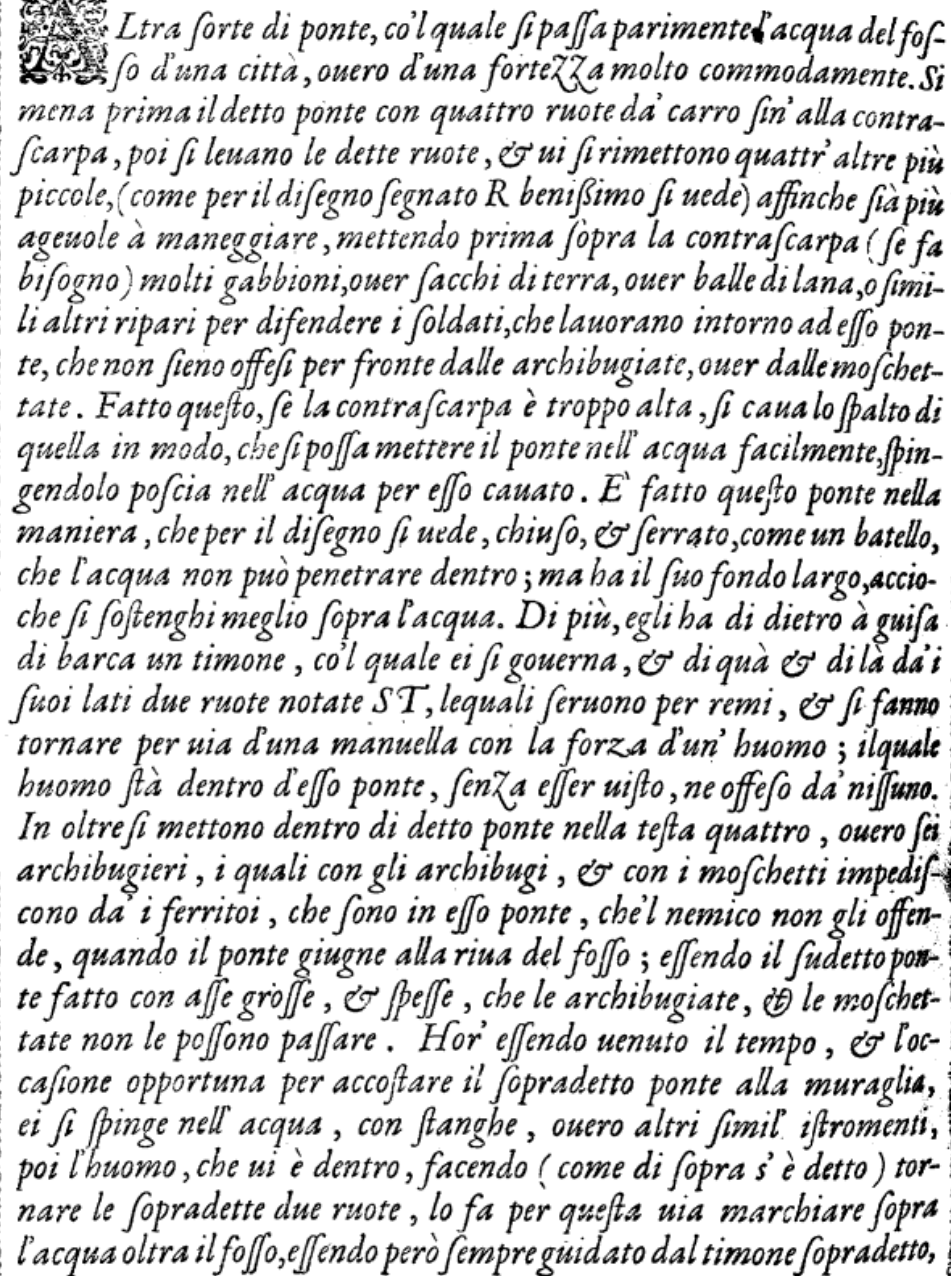 ALtra ſorte di ponte, co'l quale ſi paſſa parimente l'acqua del foſ-
ſo d'una città, ouero d'una fortezza molto commodamente. Si
mena prima il detto ponte con quattro ruote da' carro ſin' alla contra-
ſcarpa, poi ſi leuano le dette ruote, & ui ſi rimettono quattr' altre più
piccole, (come per il diſegno ſegnato R benißimo ſi uede) affinche ſià più
ageuole à maneggiare, mettendo prima ſopra la contraſcarpa (ſe fa
biſogno) molti gabbioni, ouer ſacchi di terra, ouer balle di lana, o ſimi-
li altri ripari per difendere i ſoldati, che lauorano intorno ad eſſo pon-
te, che non ſieno offeſi per fronte dalle archibugiate, ouer dalle moſchet-
tate. Fatto queſto, ſe la contraſcarpa è troppo alta, ſi caua lo ſpalto di
quella in modo, che ſi poſſa mettere il ponte nell' acqua facilmente, ſpin-
gendolo poſcia nell' acqua per eſſo cauato. E' fatto queſto ponte nella
maniera, che per il diſegno ſi uede, chiuſo, & ſerrato, come un batello,
che l'acqua non può penetrare dentro; ma ha il ſuo fondo largo, accio-
che ſi ſoſtenghi meglio ſopra l'acqua. Di più, egli ha di dietro à guiſa
di barca un timone, co'l quale ei ſi gouerna, & di quà & di là da'i
ſuoi lati due ruote notate ST, lequali ſeruono per remi, & ſi fanno
tornare per uia d'una manuella con la forza d'un' huomo; ilquale
huomo ſtà dentro d'eſſo ponte, ſenza eſſer uiſto, ne offeſo da' niſſuno.
In oltre ſi mettono dentro di detto ponte nella teſta quattro, ouero ſei
archibugieri, i quali con gli archibugi, & con i moſchetti impediſ-
cono da' i ferritoi, che ſono in eſſo ponte, che'l nemico non gli offen-
de, quando il ponte giugne alla riua del foſſo; eſſendo il ſudetto pon-
te fatto con aſſe groſſe, & ſpeſſe, che le archibugiate, & le moſchet-
tate non le poſſono paſſare. Hor' eſſendo uenuto il tempo, & l'oc-
caſione opportuna per accoſtare il ſopradetto ponte alla muraglia,
ei ſi ſpinge nell' acqua, con ſtanghe, ouero altri ſimil' iſtromenti,
poi l'huomo, che ui è dentro, facendo (come di ſopra s' è detto) tor-
nare le ſopradette due ruote, lo fa per queſta uia marchiare ſopra
l'acqua oltra il foſſo, eſſendo però ſempre guidato dal timone ſopradetto,